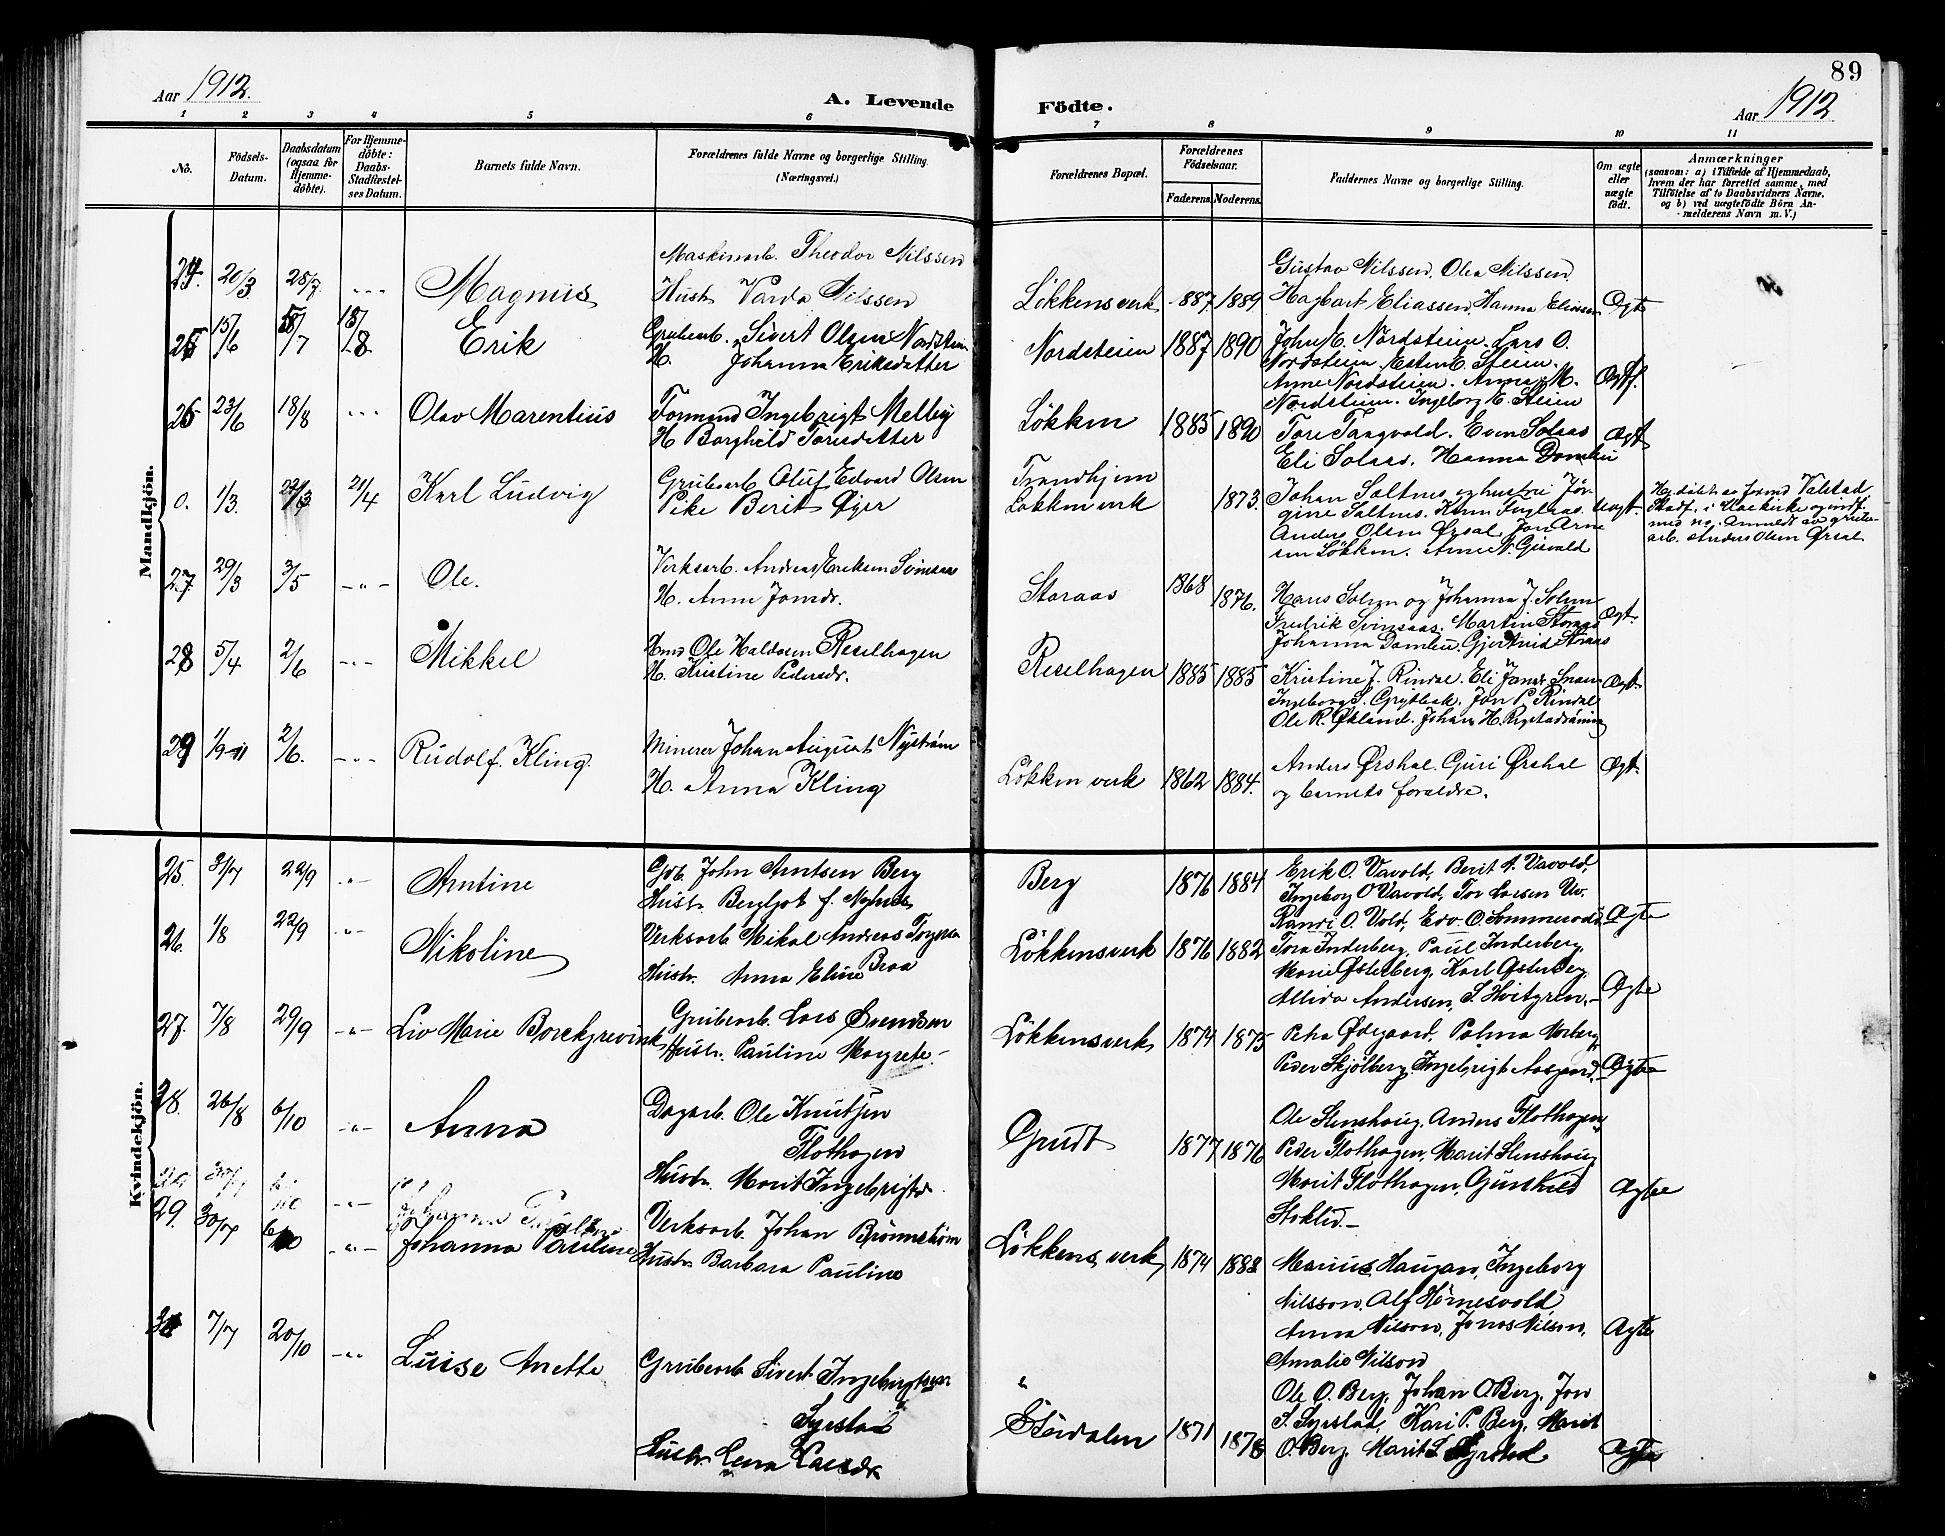 89
Aar 1912.
A. Levende Födte.
Aar 1912
1 2 3 4 5 6 7 8 9 10 11
No.
Födsels-
Datum.
Daabsdatum
(ogsaa for
Hjemme-
döbte).
For Hjemme-
döbte:
Daabs-
Stadfæstel-
ses Datum.
Barnets fulde Navn.
Forældrenes fulde Navne og borgerlige Stilling.
(Næringsvei.)
Forældrenes Bopæl.
Forældrenes
Födselsaar.
Faderens. Moderens.
Faddernes Navne og borgerlige Stilling.
Om ægte
eller
uægte
födt.
Anmærkninger
(saasom: a) i Tilfælde af Hjemmedaab,
hvem der har forrettet samme, med
Tilföielse af to Daabsvidners Navne,
og b) ved uægtefödte Börn An-
melderens Navn m. V.)
Mandkjön.
24. 20/3 28/7 Magnus
Maskinarb. Theodor Nilssen
Hust. Varda Nilssen
Løkkensverk 1887 1889
Gustav Nilssen, Olea Nilssen
Hagbart Eliassen, Hanna Eliassen Ægte
25 15/6 /7 18/8 Erik
Grubearb. Sivert Olsen Nordsteien
H. Johanna Eriksdatter
Nordsteien 1887 1890
John E. Nordsteien. Lars O.
Nordsteien. Esten E. Steien.
Anne Nordsteien. Anna M.
Nordsteien. Ingeborg E. Steien Ægt.
26 23/6 18/8 Olav Marentius
Formand Ingebrigt Melby
H Borghild Toresdatter
Løkken 1885 1890
Tore Tangvold. Even Solaas
Eli Solaas. Hanna Domliu Ægt
0. 1/3. 22/3 21/4 Karl Ludvig
Grubearb Oluf Edvard Olsen
Pike Berit Øyer
Trondhjem
Løkken verk 1873.
Johan Saltnes og hustru Jør-
gine Saltnes.
Anders Olsen Ørsal, Jon Arne
sen Løkken. Anne N. Grisvald Uægt.
Hj.døbt av formd Valstad
Stadf. i Moe kirke og indf.
med no. Anmeldt av grube-
arb. Anders Olsen Ørsal
27. 29/3 3/5 Ole.
Verksarb. Andreas Eriksen Svinsaas
H. Anne Jonsdr.
Storaas 1868 1876.
Hans Solem og Johanna J. Solem
Fredrik Svinsaas. Martin Storaas
Johanna Domliu. Gjertrud Storaas Ægt.
28 5/4 2/6 Mikkel
Hmd Ole Haldosen Reselhagen
H. Kristine Pedersdr.
Reselhagen 1885 1885
Kristine J. Rindal. Eli Jonsd. Snoen
Ingeborg S. Grytbak. Jon P. Rindal
Ole R. Økland. Johan H. Ægt.
29 1/9-11 2/6. Rudolf. Kling.
Minerer Johan August Nystrøm
H. Anna Kling
Løkken verk 1862 1884.
Anders Ørshal. Guri Ørshal
og barnets forældre. Ægt.
Kvindekjön.
25. 31/7 22/9 Arntine
Gdb. John Arntsen Berg
Hust. Bergljot f. Nyhus
Berg 1876 1884
Erik O. Vavold, Berit A. Vavold,
Ingeborg O Vavold, Tor Larsen Uv.
Randi O. Vold, Edv. O. Sommervold Ægte
26. 1/8 22/9 Nikoline
Verksarb Mikal Andreas Torgersen
Hustr. Anna Eline Braa
Løkkensverk 1876 1882
Tora Inderberg, Paul Inderberg,
Marie Østerberg, Karl Østerberg,
Allida Andersen, S. Hvitgren. Ægte
27. 7/8 29/9 Liv Marie Borckgrevink
Grubearb. Lars Svendsen
Hustr. Pauline Margrete.
Løkkensverk 1874 1875
Petra Ødegaard, Palma Morberg,
Peder Skjølberg, Ingebrigt Aasgaard. Ægte
28. 26/8 6/10 Anna
Dagarb. Ole Knutsen
Flothagen
Hustr. Marit Ingebrigtsd.
Grudt 1877 1876
Ole Stenshaug, Anders Flothagen,
Peder Flothagen, Marit Stenshaug
Marit Flothagen, Gunhild
Stoklid. Ægte
29. 30/7 6/10 Johanna Pauline
Verksarb. Johan Brønnstrøm
Hustr Barbara Pauline
Løkkens verk 1874 1888
Marius Haugan, Ingeborg
Nilsson, Alf Hørnesvold,
Anna Nilson, Jonas Nilsen,
Amalie Nilson Ægte
30 7/7 20/10 Luise Anette
Grubearb Sivert Ingebrigtsen
Syrstad
Hustr. Lena Larsdr
Stordalen 1871 1878
Ole O. Berg, Johan O Berg, Jon
S. Syrstad, Kari P. Berg, Marit
O. Berg, Marit S. Syrstad Ægte